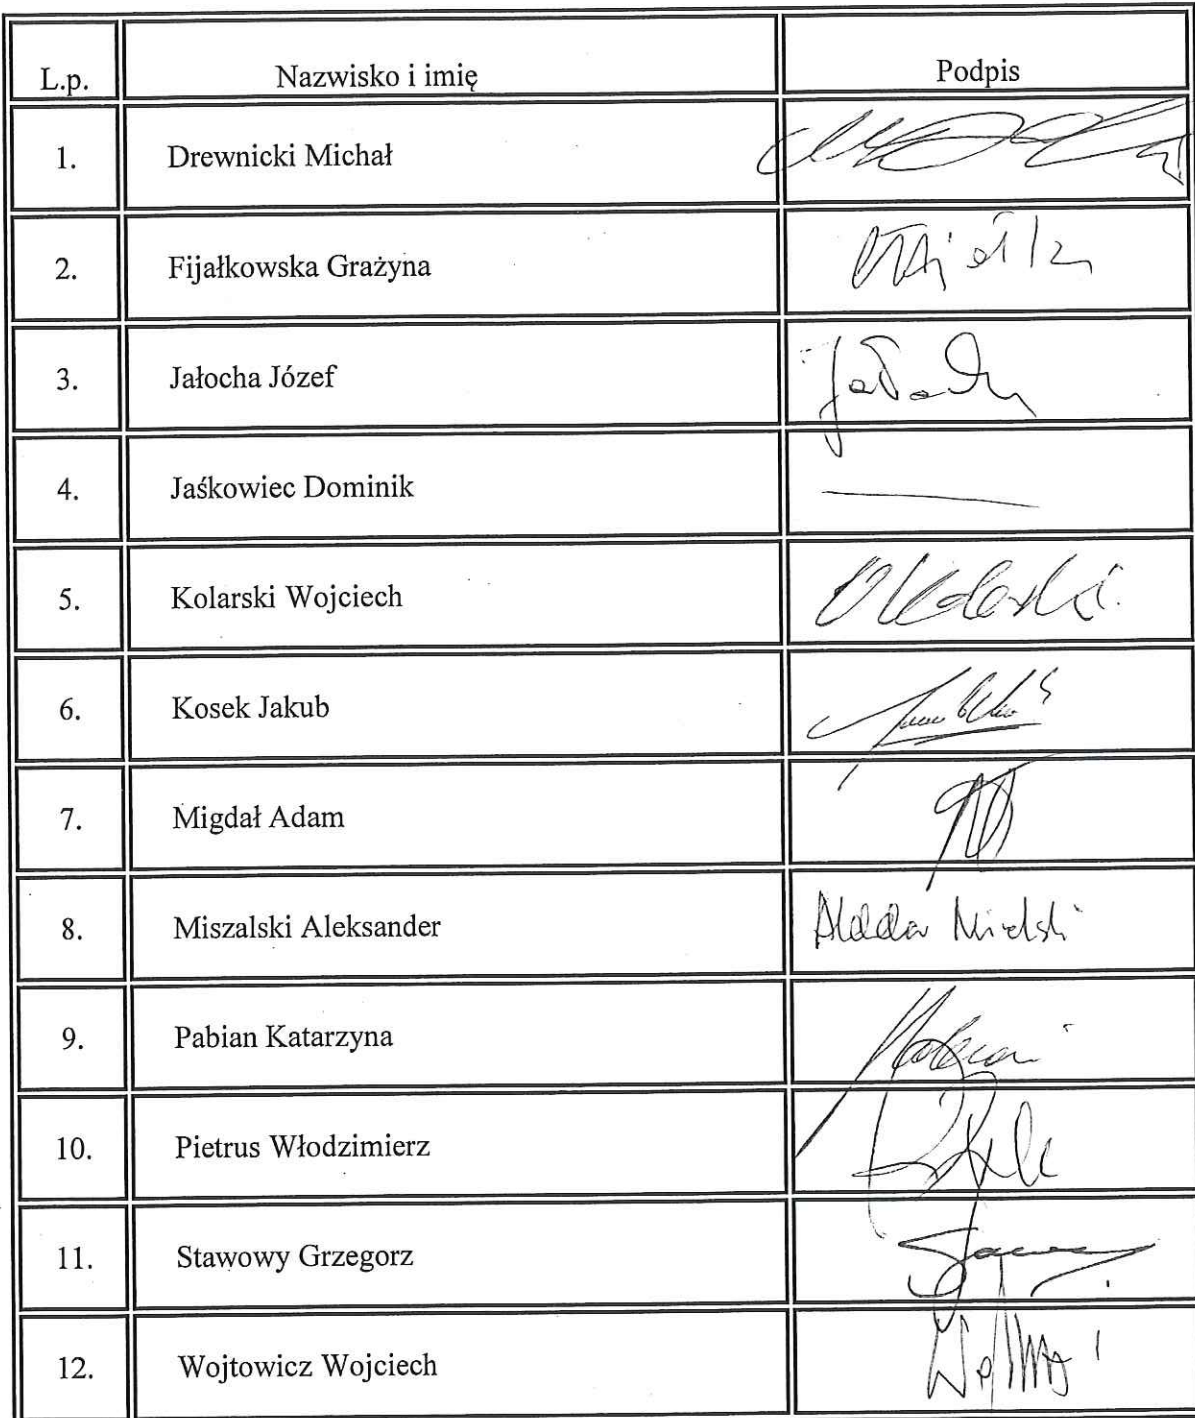 L.p. Nazwisko i imię Podpis
1. Drewnicki Michał
2. Fijałkowska Grażyna
3. Jałocha Józef Jałocha
4. Jaśkowiec Dominik
5. Kolarski Wojciech WKolarski
6. Kosek Jakub
7. Migdał Adam
8. Miszalski Aleksander
9. Pabian Katarzyna
10. Pietrus Włodzimierz
11. Stawowy Grzegorz
12. Wojtowicz Wojciech